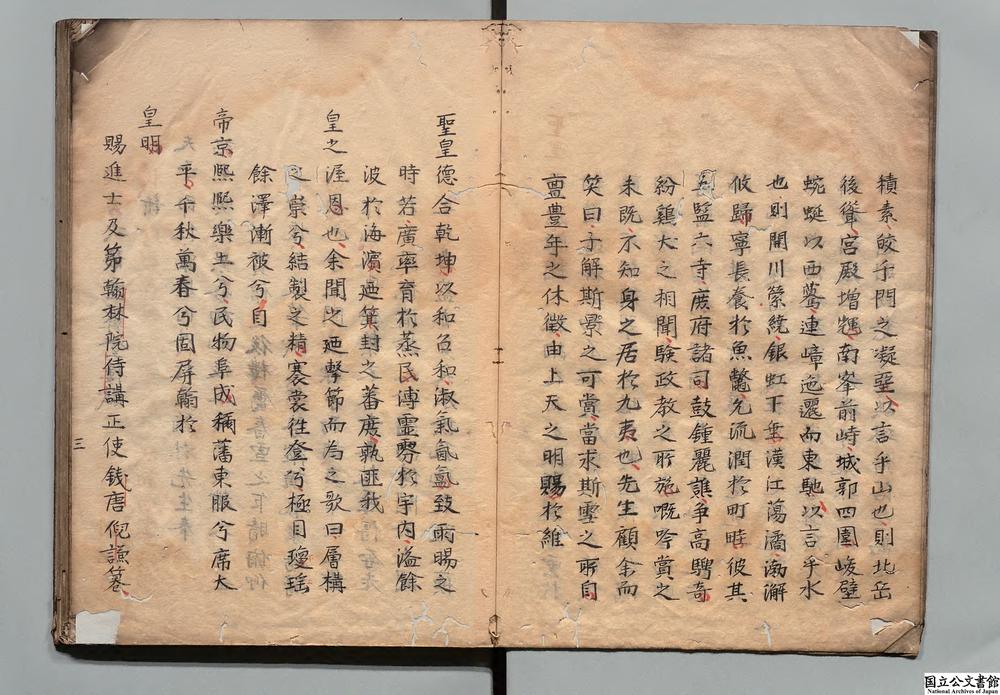 積素、皎千門之凝璧、以言乎山也、則北岳
後聳、宮殿增輝、南峯前峙、城郭四圍、峻壁
蜿蜒以西騖、連嶂迤邐而東馳、以言乎水
也、則開川縈繞、銀虹下垂、漢江蕩潏、渤澥
攸歸、寧長養於魚鼈、允流潤於町畦、彼其
五監六寺、庶府諸司、鼓鍾麗譙、爭高騁奇
紛雞犬之相聞、驗政教之所施、嘅吟賞之
未既、不知身之居於九夷也、先生顧余而
笑曰、子解斯景之可賞、當求斯雪之所自
亶豊年之休徵、由上天之明賜、於維
聖皇德合乾坤、以和召和、淑氣氤氳、致雨暘之
時若、廣率育於蒸民、溥霊雰於宇内、溢餘
波於海濵、廼箕封之蕃庶、孰匪我
皇之渥恩也、余聞之、廼擊節而為之歌曰、層構
之崇兮、結製之精、褰裳徃登兮、極目瓊瑤
餘澤漸被兮、自
帝京熙熙樂土兮、民物阜成、稱藩東服兮、席太
平、千秋萬春兮、固屏翰於
皇明
賜進士及第翰林院侍講正使錢唐倪謙篹、
三
国立公文書館
National Archives of Japan